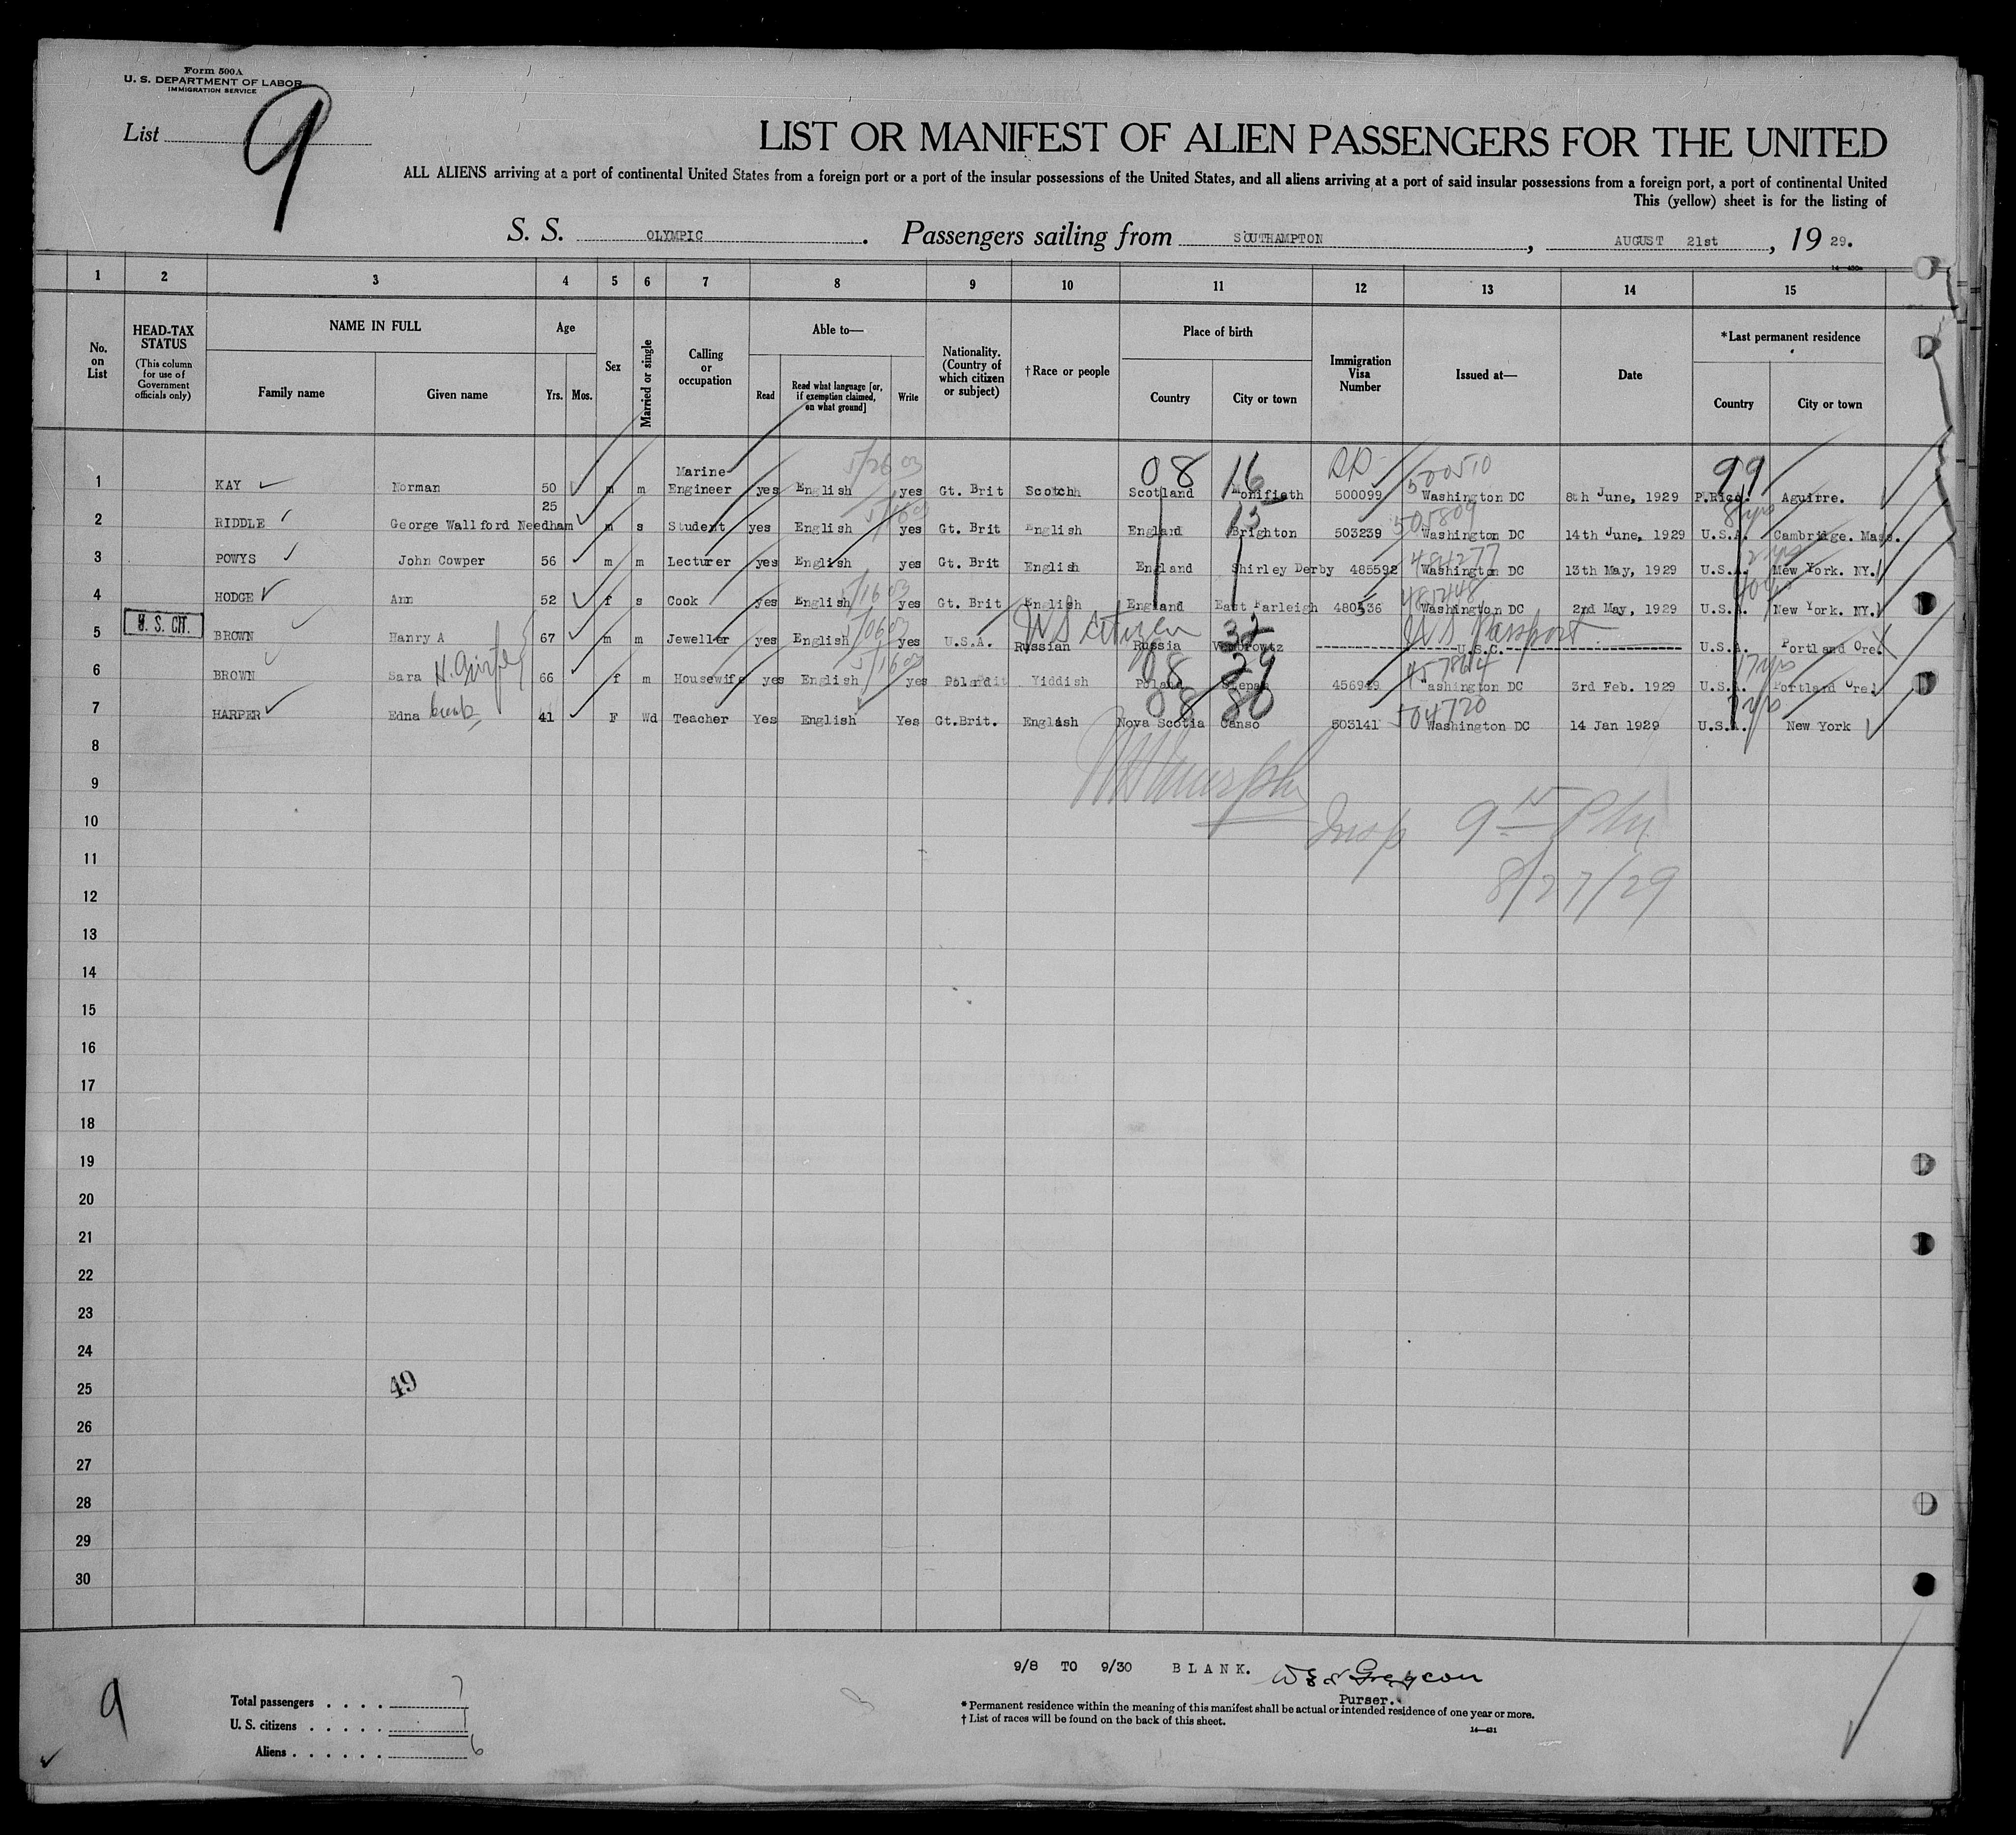 Form 500A
U. S. DEPARTMENT OF LABOR
IMMIGRATION SERVICE
List 9
LIST OR MANIFEST OF ALIEN PASSENGERS FOR THE UNITED
ALL ALIENS arriving at a port of continental United States from a foreign port or a port of the insular possessions of the United States, and all aliens arriving at a port of said insular possessions from a foreign port, a port of continental United
This (yellow) sheet is for the listing of
S. S. OLYMPIC. Passengers sailing from SOUTHAMPTON, AUGUST 21st, 19 29.
1 2 3 4 5 6 7 8 9 10 11 12 13 14 15
No. on List
HEAD-TAX STATUS
(This column for use of Government officials only)
NAME IN FULL
Family name
Given name
Age
Yrs. Mos.
Sex
Married or single
Calling or occupation
Able to—
Read
Read what language [or, if exemption claimed, on what ground]
Write
Nationality. (Country of which citizen or subject)
†Race or people
Place of birth
Country
City or town
Immigration Visa Number
Issued at—
Date
*Last permanent residence
Country
City or town
5/26 03 08 16 500510 99
1 KAY Norman 50 m m Marine Engineer yes English yes Gt. Brit Scotch Scotland Monifieth 500099 Washington DC 8th June, 1929 P.Rico. Aguirre.
15 505809
2 RIDDLE George Wallford Needham 25 m s Student yes English yes Gt. Brit English England Brighton 503239 Washington DC 14th June, 1929 U.S.A. Cambridge. Mass.
484277
3 POWYS John Cowper 56 m m Lecturer yes English yes Gt. Brit English England Shirley Derby 485592 Washington DC 13th May, 1929 U.S.A. New York. NY.
5/16 03 485448
4 HODGE Ann 52 f s Cook yes English yes Gt. Brit English England East Farleigh 480536 Washington DC 2nd May, 1929 U.S.A. New York. NY.
U. S. CIT.
US Citizen 32 US Passport
5 BROWN Hanry A 67 m m Jeweller yes English yes U.S.A. Russian Russia U.S.C. U.S.A. Portland Ore.
5/16 03 08 29 457864 17 yrs
6 BROWN Sara 66 f m Housewife yes English yes Yiddish Poland 456949 Washington DC 3rd Feb. 1929 U.S.A. Portland Ore.
08 80 504720
7 HARPER Edna 41 F Wd Teacher Yes English Yes Gt.Brit. English Nova Scotia Canso 503141 Washington DC 14 Jan 1929 U.S.A. New York
8
9
10
Insp 9 15 PM
11
8/27/29
12
13
14
15
16
17
18
19
20
21
22
23
24
25 49
26
27
28
29
30
9/8 TO 9/30 BLANK.
Purser.
9
Total passengers . . . . 7
U. S. citizens . . . . . 1
Aliens . . . . . . 6
* Permanent residence within the meaning of this manifest shall be actual or intended residence of one year or more.
† List of races will be found on the back of this sheet.
14—431